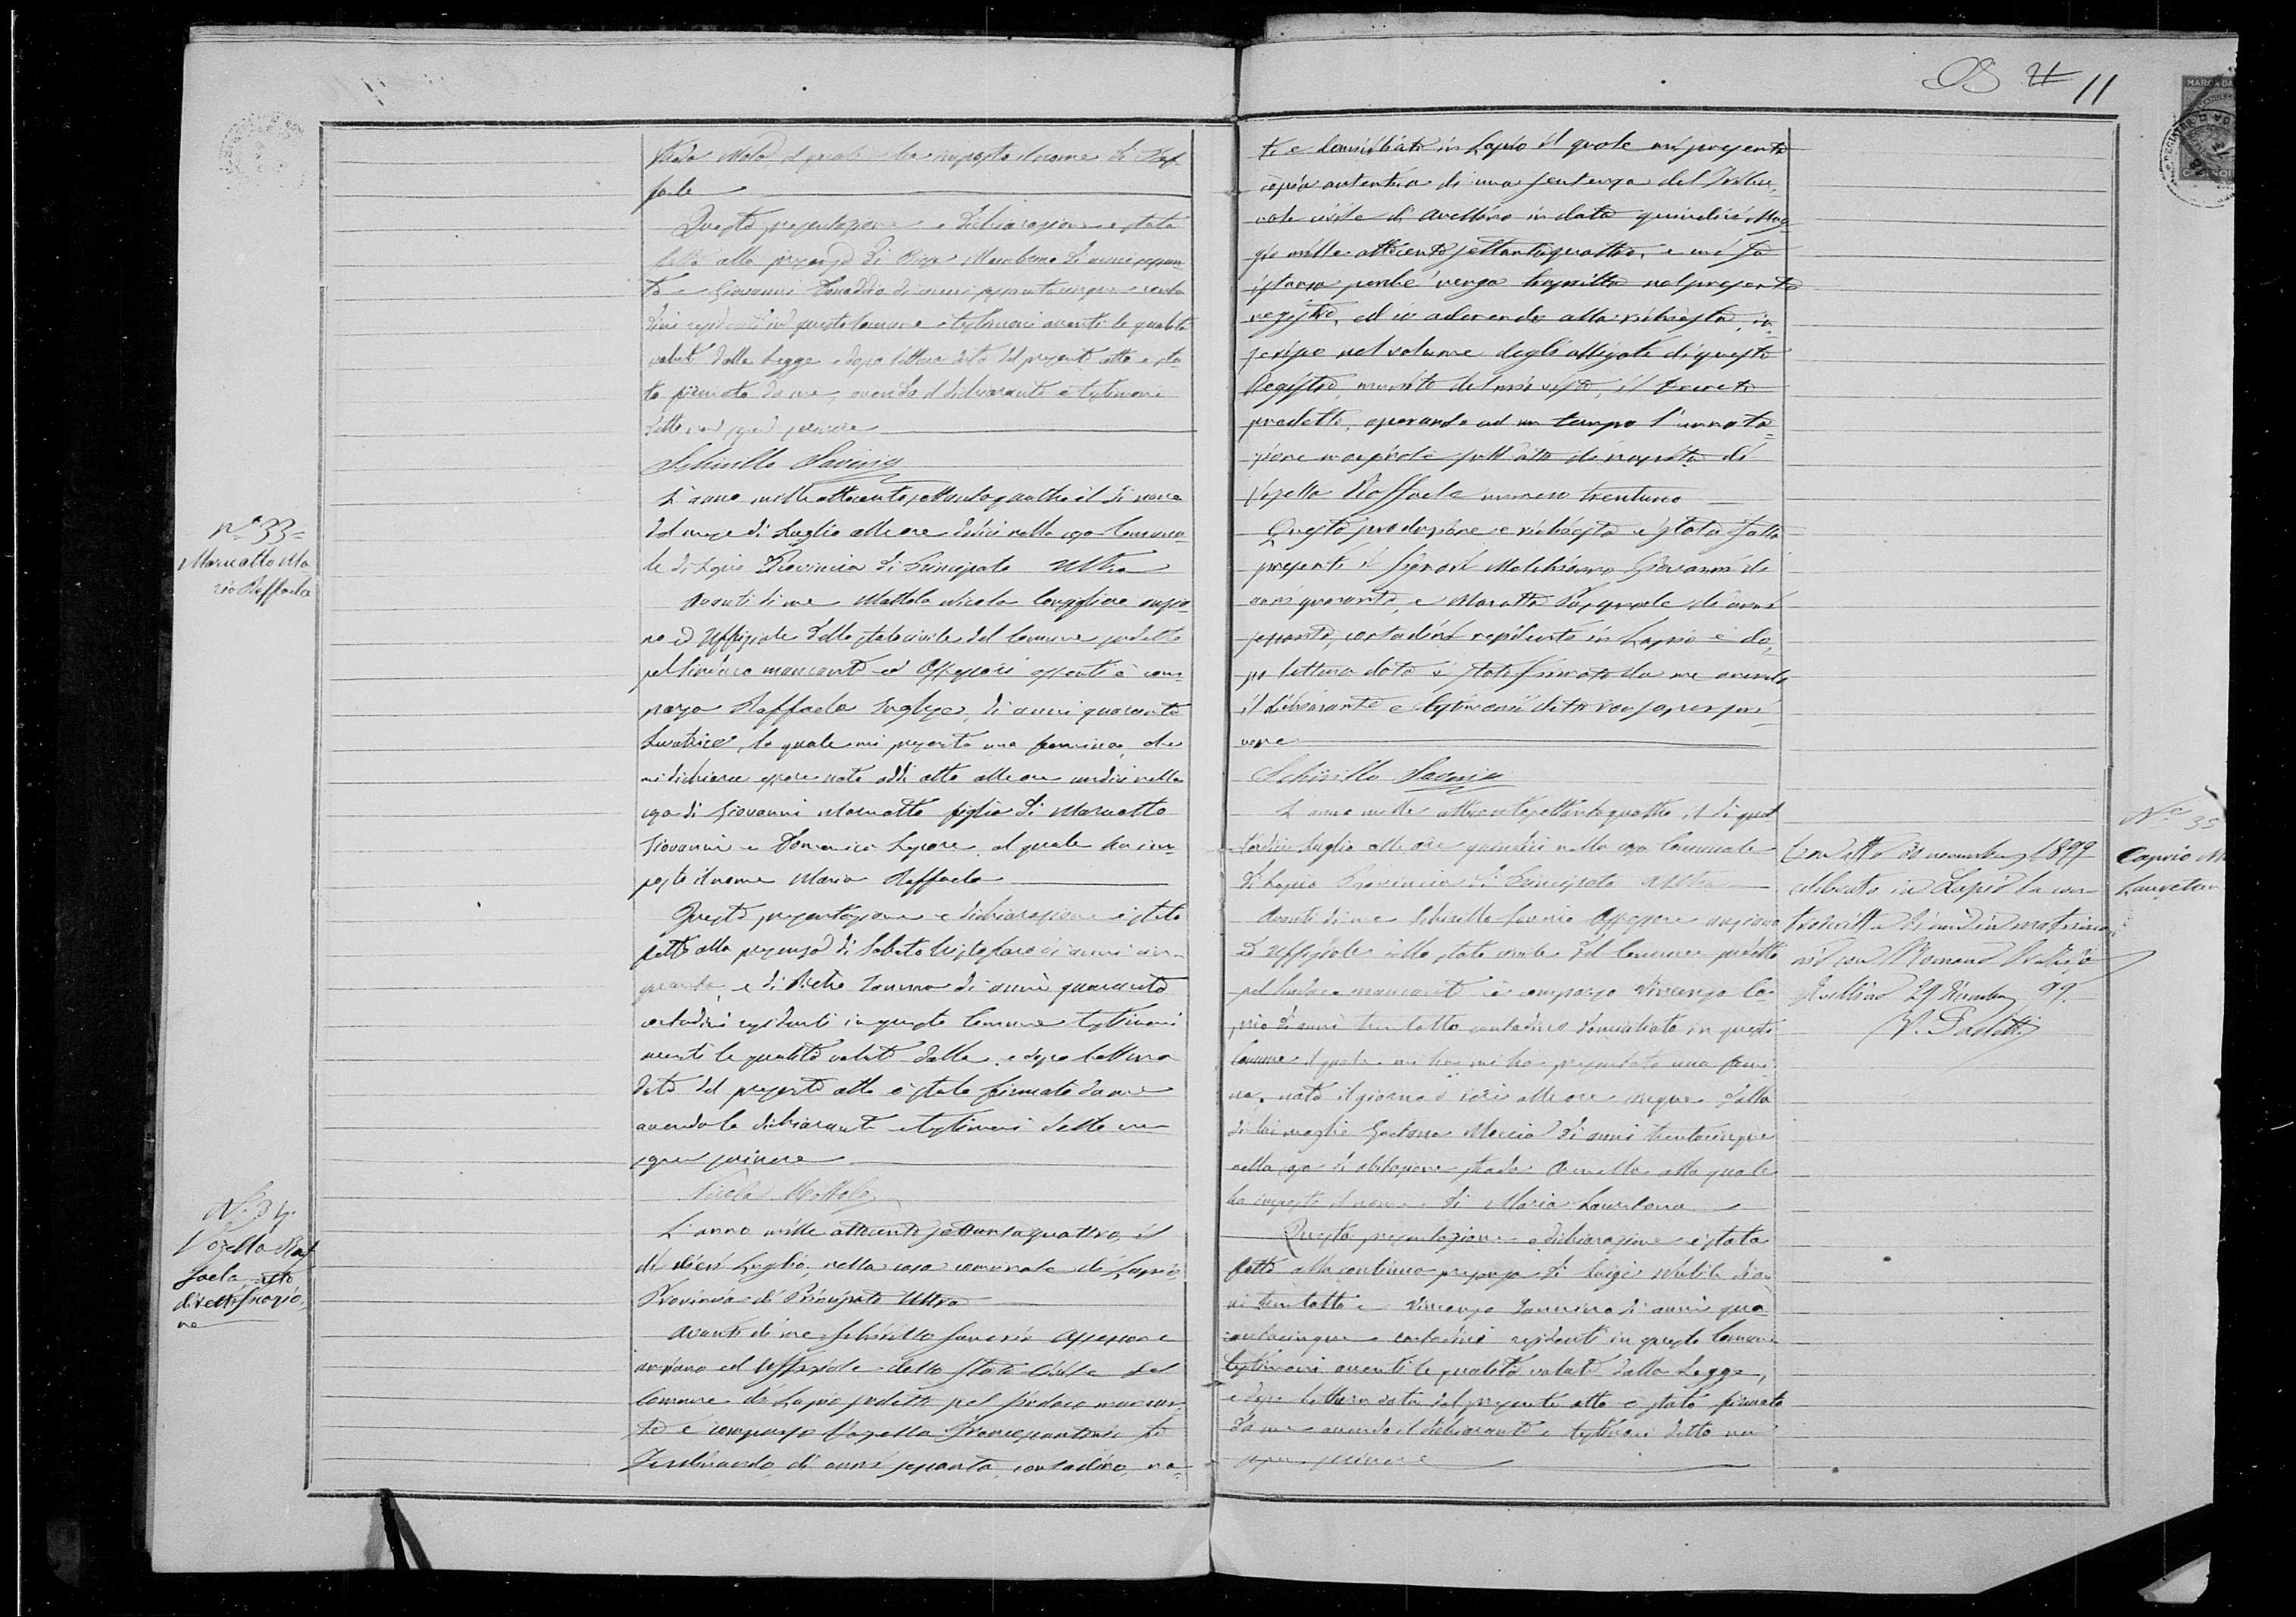 11
strada Nola il quale ha imposto il nome di Raf
faele
Questa presentazione e dichiarazione è stata
fatta alla presenza di di anni sessan
ta e Giovanni di anni sessantacinque conta
dini residenti in questo Comune testimoni aventi le qualità
volute dalla Legge e dopo lettura data del presente atto è sta
to firmato da me, avendo il dichiarante e testimoni
detto non saper scrivere
Schirillo Saverio
Nº 33=
Marcatto Ma
ria Raffaela
L'anno mille ottocento settantaquattro il dì nove
del mese di Luglio alle ore dodici nella casa Comuna
le di Lapio Provincia di Principato Ultra
Avanti di me Mattola Nicola Consigliere anzia
no ed Uffiziale dello stato civile del Comune sudetto
pel Sindaco mancante ed Assessori assenti è com
parsa Raffaela di anni quaranta
Levatrice, la quale mi presenta una femina, che
mi dichiara essere nata addì otto alle ore undici nella
casa di Giovanni Marcatto figlia di Marcatto
Giovanni e Domenica Lepore, al quale ha im
posto il nome Maria Raffaela
Questa presentazione e dichiarazione è stata
fatta alla presenza di Sabato di anni cin
quanta, e di Pietro Iannino di anni quaranta
contadini residenti in questo Comune testimoni
aventi le qualità volute dalla, e dopo lettura
data del presente atto è stato firmato da me
avendo la dichiarante e testimoni detto non
saper scrivere
Nicola Mattola
N. 34.
Vozella Raf
faela, atto
di rettificazio
ne
L'anno mille ottocento settantaquattro, il
dì dieci Luglio, nella casa comunale di Lapio
Provincia di Principato Ultra
Avanti di me Schirillo Saverio Assessore
anziano ed Uffiziale dello stato Civile del
Comune di Lapio sudetto pel Sindaco mancan
te è comparso Vozella Francescantonio fu
Ferdinando di anni sessanta, contadino, na=
to e domiciliato in Lapio il quale mi presenta
copia autentica di una sentenza del Tribu
nale civile di Avellino in data quindici Mag
gio mille ottocento settantaquattro, e mi fa
istanza perché venga trascritta nel presente
registro, ed io aderendo alla richiesta, in
serisco nel volume degli allegati di questo
Registro, munito del mio visto, il decreto
predetto, operando ad un tempo l'annota=
zione marginale sull'atto di nascita di
Vozella Raffaela numero trentuno
Questa produzione e richiesta è stata fatta
presenti i signori Melchionno Giovanni di
anni quaranta, e Moratto Pasquale di anni
sessanta, contadini residenti in Lapio e do
po lettura data è stato firmato da me avendo
il dichiarante e testimoni detto non saper scri
vere
Schirillo Saverio
Nº 35
Caprio M
Lauretan
L'anno mille ottocento settantaquattro, il dì quat
tordici Luglio alle ore quindici nella casa Comunale
di Lapio Provincia di Principato Ultra
Avanti di me Schirillo Saverio Assessore anziano
ed Uffiziale dello stato civile del Comune sudetto
pel Sindaco mancante è comparso Vincenzo Ca
prio di anni trentotto contadino domiciliato in questo
Comune il quale mi ha mi ha presentato una femi
na, nata il giorno di ieri alle ore cinque dalla
di lui moglie Gaetana Moccia di anni trentacinque
nella casa di abitazione strada alla quale
ha imposto il nome di Maria Lauretana
Questa presentazione e dichiarazione è stata
fatta alla continua presenza di Luigi di an
ni trentotto e Vincenzo Iannino di anni qua
rantacinque contadini residenti in questo Comune
testimoni aventi le qualità volute dalla Legge,
e dopo lettura data del presente atto è stato firmato
da me avendo il dichiarante e testimoni detto non
saper scrivere
Con atto 30 novembre 1899
celebrato in Lapio ha con
tratto matrimo
nio con Romano
Avellino 29 Dicembre 99.